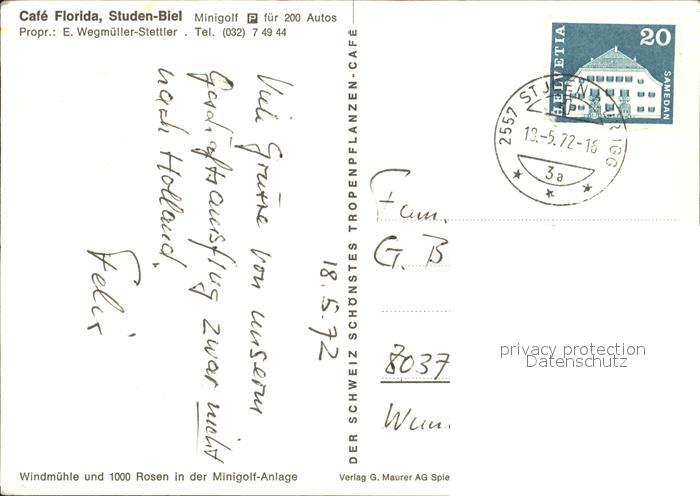 Café Florida, Studen-Biel Minigolf P für 200 Autos
Propr.: E. Wegmüller-Stettler . Tel. (032) 7 49 44
18.5.72
Viele Grüsse von unserm
Geschäftsausflug zwar nicht
nach Holland.
Felix
Windmühle und 1000 Rosen in der Minigolf-Anlage
DER SCHWEIZ SCHÖNSTES TROPENPFLANZEN-CAFÉ
Verlag G. Maurer AG Spie
HELVETIA
20
SAMEDAN
2557 STUDEN B. BRÜGG
18.-5.72-16
3a
Fam.
G. B
8037
privacy protection
Datenschutz